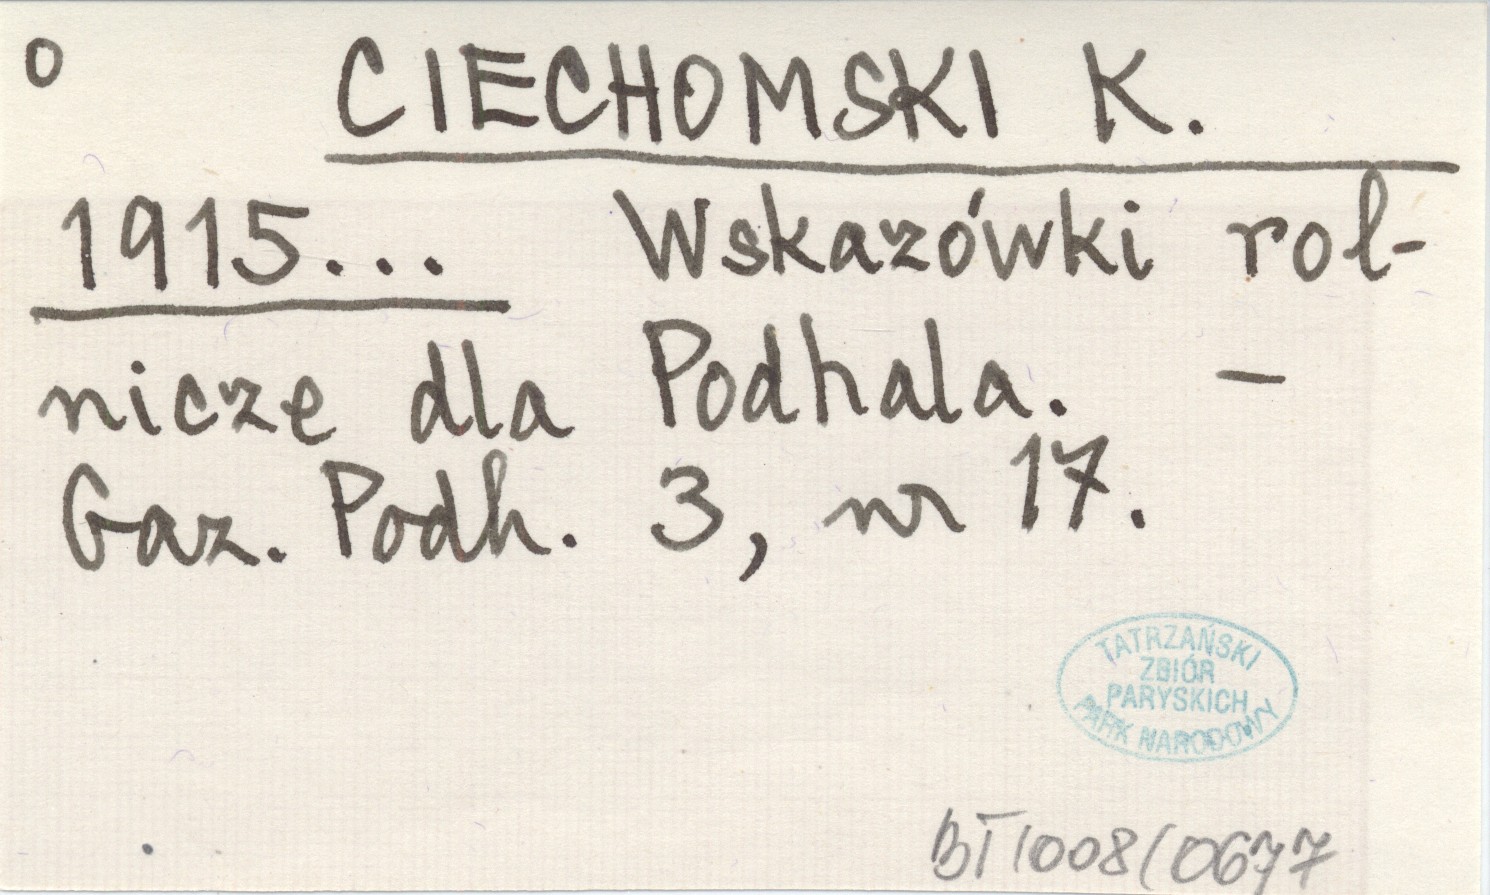 o CIECHOMSKI K.
1915... Wskazówki rol-
nicze dla Podhala. –
Gaz. Podh. 3, nr 17.
TATRZAŃSKI
ZBIÓR
PARYSKICH
PARK NARODOWY
BT1008/0677